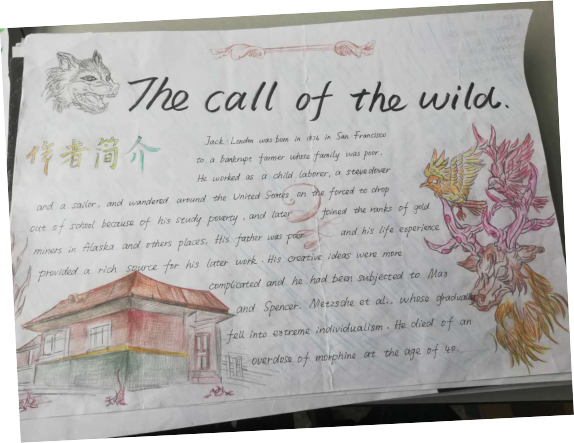 The call of the wild.
作者简介
Jack London was born in 1876 in San Francisco
to a bankrupt farmer whose family was poor.
He worked as a child laborer, a stevedover
and a sailor, and wandered around the United States on the forced to drop
out of school because of his study poverty, and later joined the ranks of gold
miners in Alaska and others places. His father was poor and his life experience
provided a rich source for his later work. His creative ideas were more
complicated and he had been subjected to Max
and Spencer. Nietzsche et al., whose gradually
fell into extreme individualism. He died of an
overdose of morphine at the age of 40.